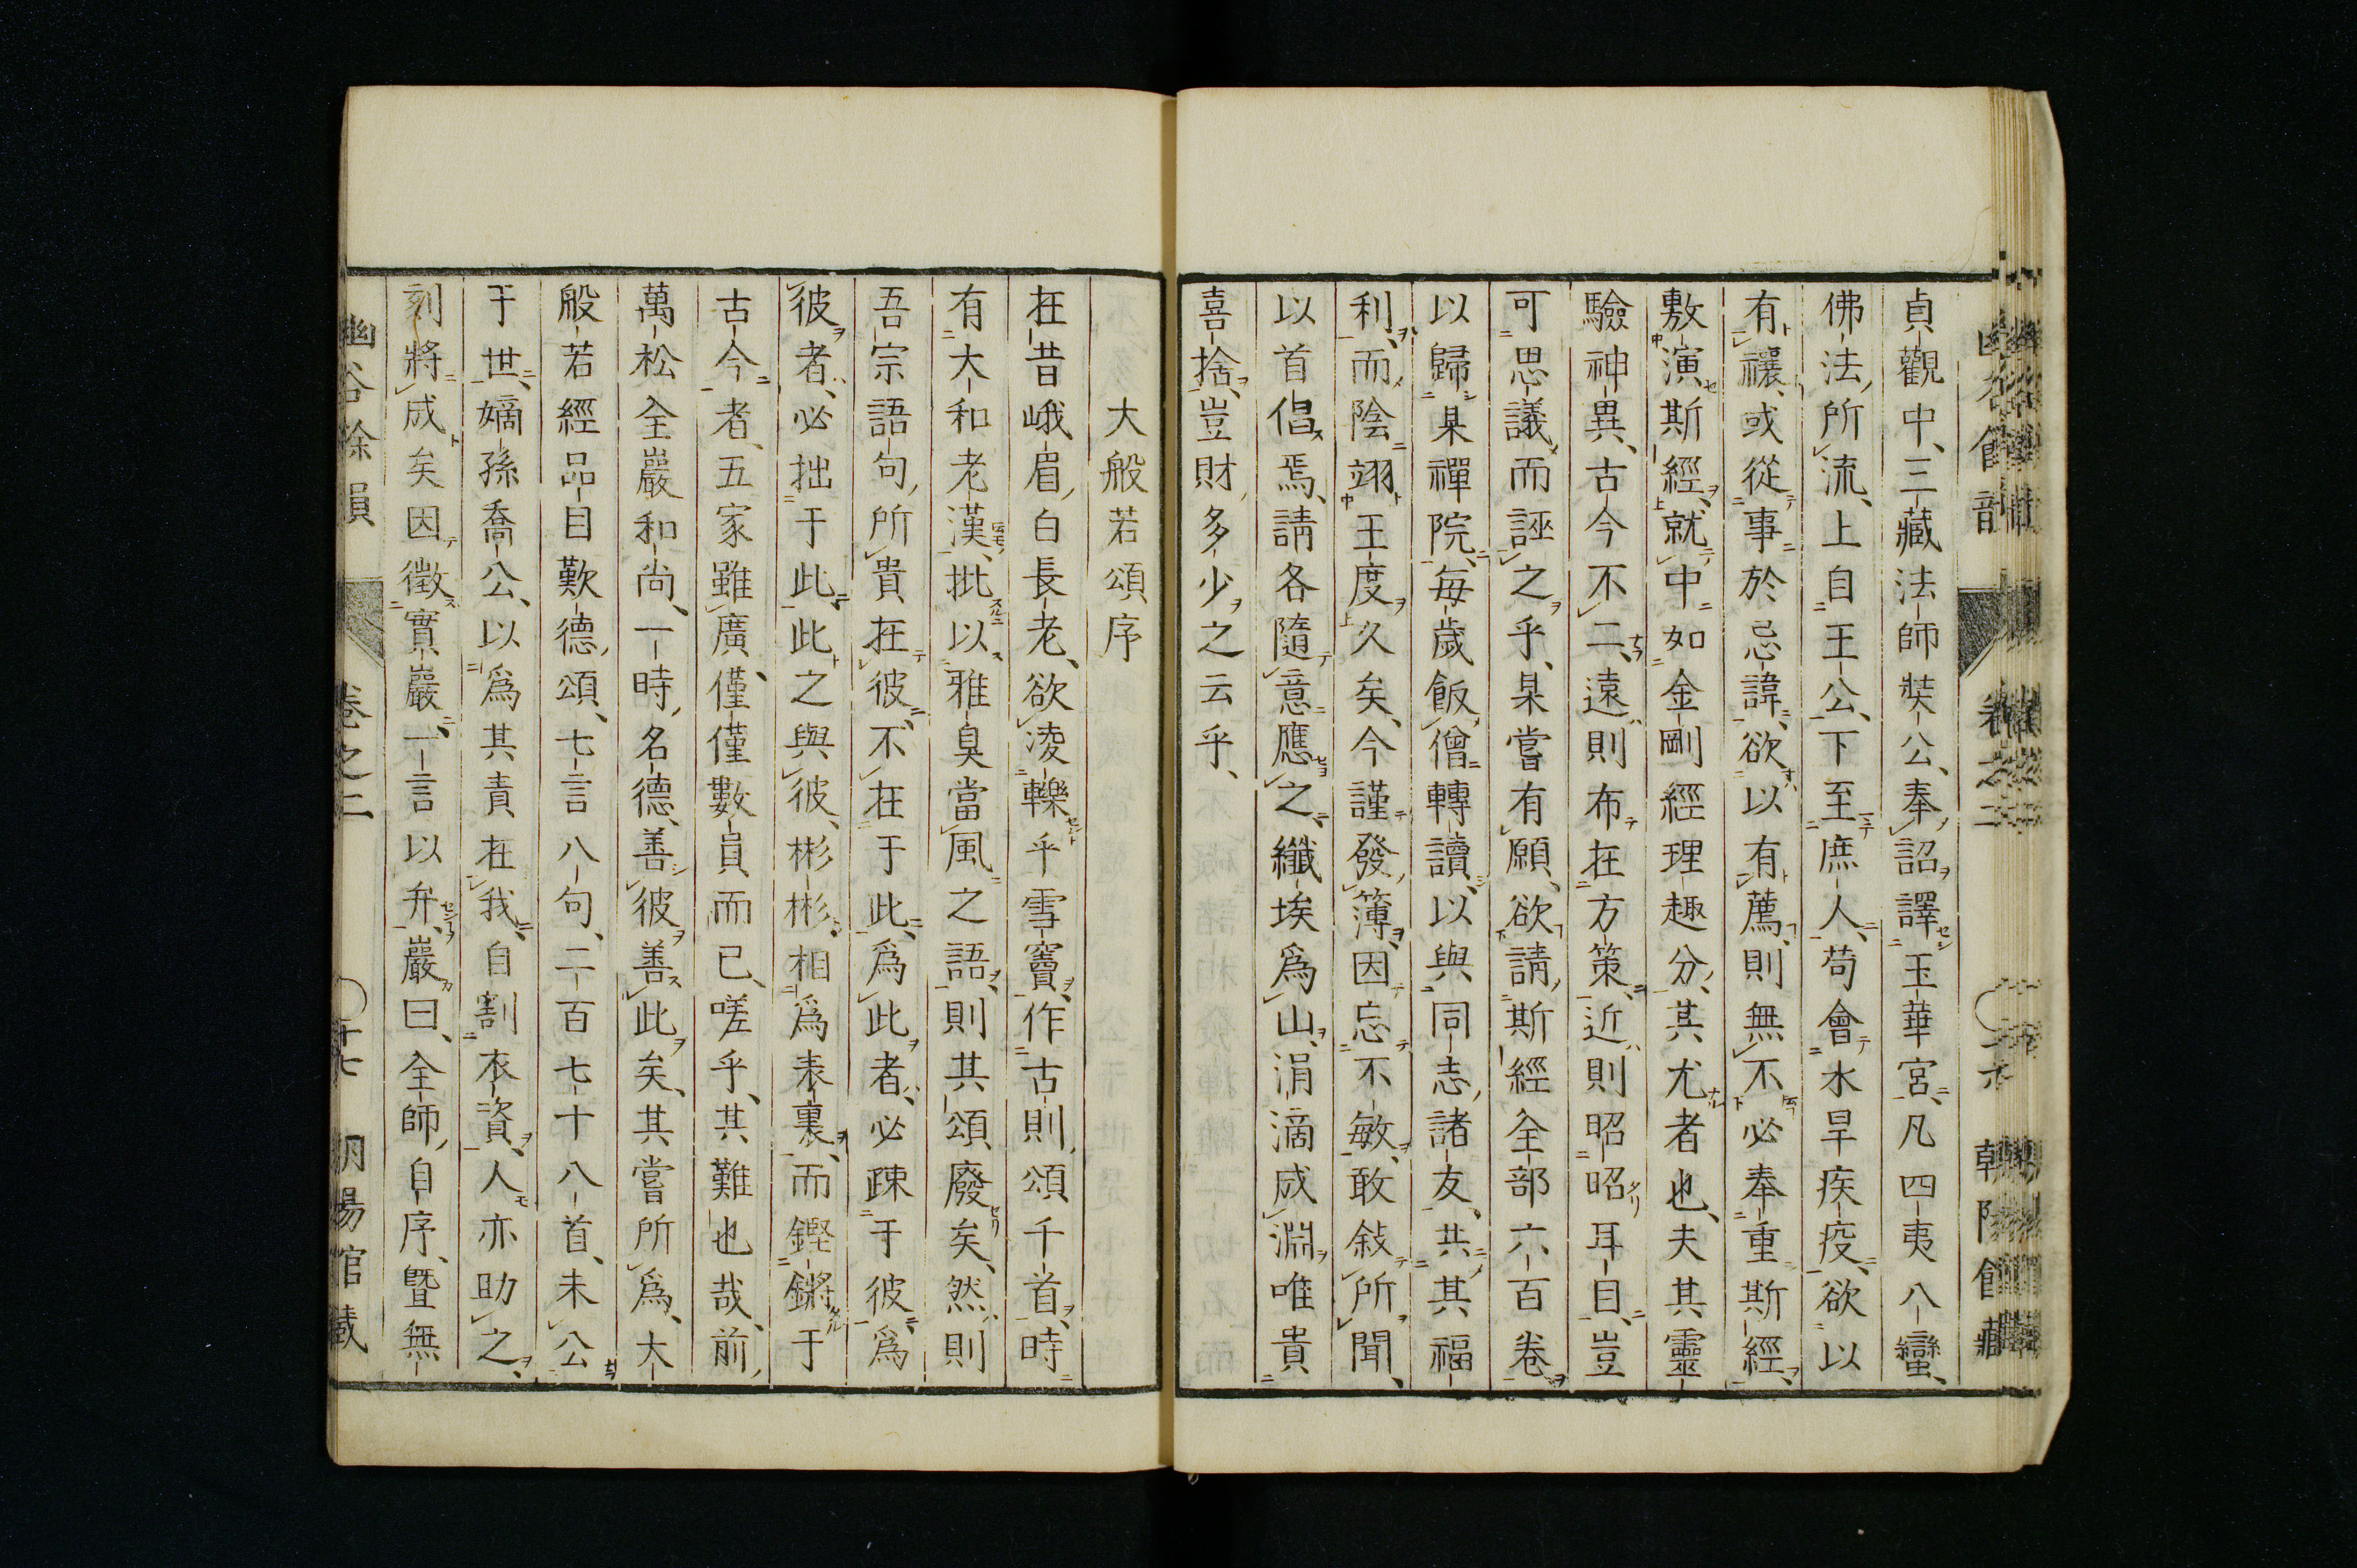 貞觀中、三藏法師奘公、奉詔譯玉華宮、凡四夷八蠻、
佛法、所流、上自王公、下至庶人、苟會水旱疾疫、欲以
有禳、或從事於忌諱、欲以有薦、則無不必奉重斯經、
敷演斯經、就中如金剛經理趣分、其尤者也、夫其靈
驗神異、古今不二、遠則布在方策、近則昭昭耳目、豈
可思議、而誣之乎、某嘗有願、欲請斯經全部六百卷、
以歸某禪院、每歲飯僧轉讀、以與同志諸友、共其福
利、而陰翊王度久矣、今謹發簿、因忘不敏、敢敍所聞、
以首倡焉、請各隨意應之、纖埃爲山、涓滴成淵唯貴
喜捨、豈財多少之云乎、
大般若頌序
在昔峨眉白長老、欲凌轢乎雪竇、作古則頌千首、時
有大和老漢、批以雅臭當風之語、則其頌廢矣、然則
吾宗語句、所貴在彼、不在于此、爲此者、必疎于彼、爲
彼者、必拙于此、此之與彼、彬彬相爲表裏、而鏗鏘于
古今者、五家雖廣、僅僅數員而已、嗟乎、其難也哉、前
萬松全巖和尚、一時名德、善彼善此矣、其嘗所爲、大
般若經品目歎德頌、七言八句、二百七十八首、未公
于世、嫡孫喬公、以爲其責在我、自割衣資、人亦助之、
刻將成矣因徵實巖一言以弁、巖曰、全師自序、曁無
幽谷餘韻 卷之二 〇十七 朝陽館藏